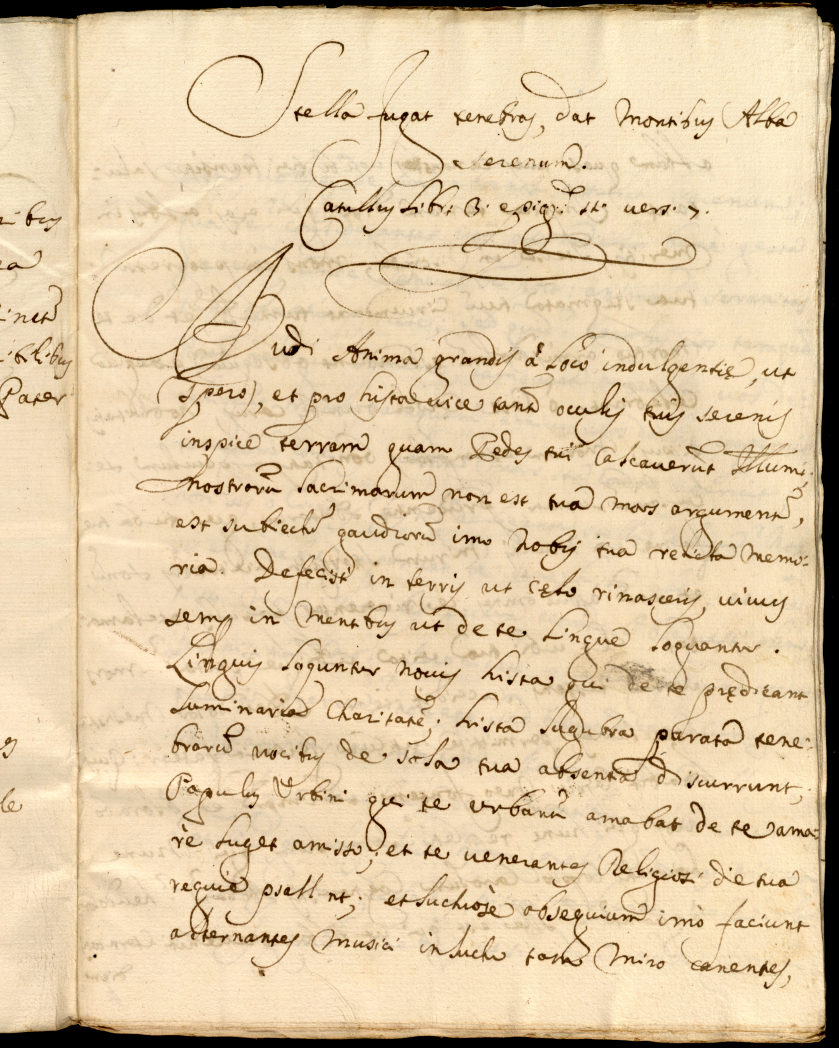 Stella fugat tenebras, dat Montibus Alba
serenum.
Catullus Libr: 3. vers: 7.
Audi Anima grandis à Loco indulgentie, ut
spero, et pro hista uice tantũ oculis tuis serenis
inspice terram quam Pedes tui Calcauerũt Illumi,
nostrorũ Lacrimarum non est tua mors argumentũ,
est subiectũ gaudiorũ imo Nobis tua relicta Memo:
ria. Defecisti in terris ut Cęlo rinasceris, uiuus
semp in Mentibus ut de te Linguę Loquantur.
Linguis Loquntur Nouis hista qui de te prędicant
Luminaria Charitatẽ; hista Lugubra parata tene:
brarũ uocibus de sola tua absentia discurrunt;
Papulus Vrbini qui te urbanũ amabat de te ama:
rè Luget amisso; et te uenerantes Religiosi de tua
requie psallnt; et Luctuose obsequium imò faciunt
alternantes Musici in Luctu tam Miro canentes,
ribus
ea
inctũ
ibilibus
Pater
le